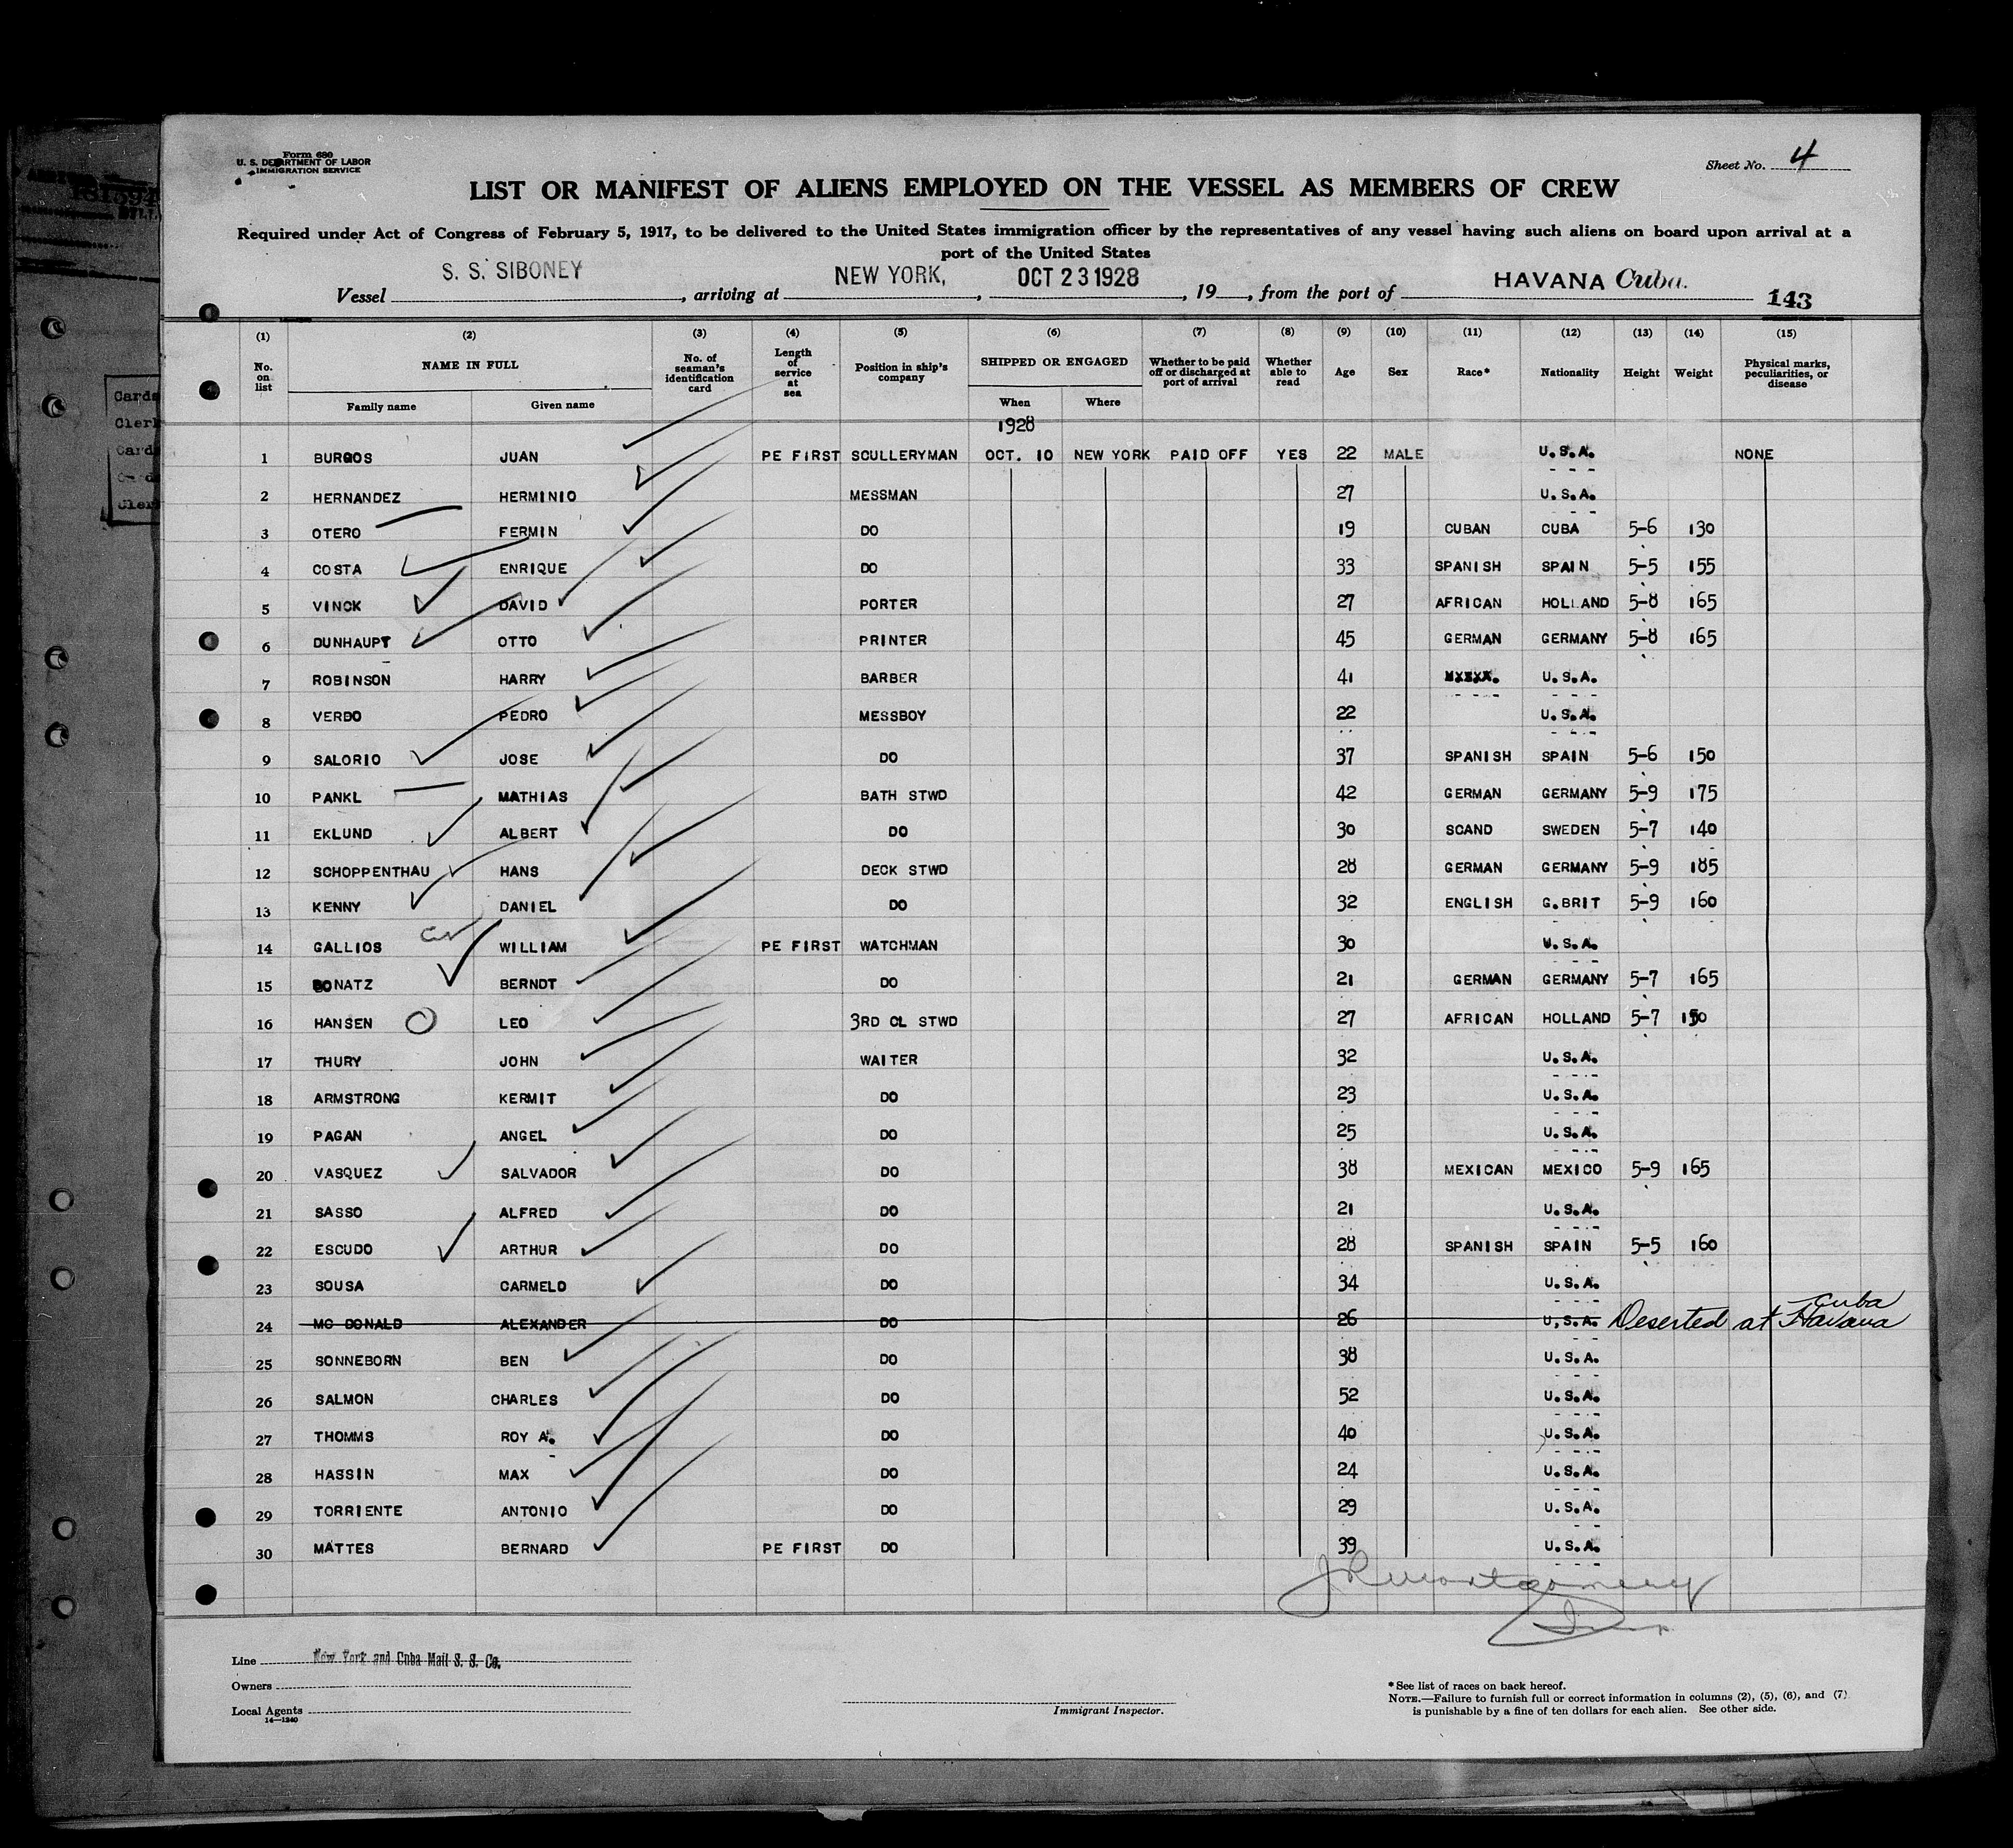 Form 680
U. S. DEPARTMENT OF LABOR
IMMIGRATION SERVICE
Sheet No. 4
LIST OR MANIFEST OF ALIENS EMPLOYED ON THE VESSEL AS MEMBERS OF CREW
Required under Act of Congress of February 5, 1917, to be delivered to the United States immigration officer by the representatives of any vessel having such aliens on board upon arrival at a
port of the United States
Vessel S. S. SIBONEY, arriving at NEW YORK, OCT 23 1928, 19, from the port of HAVANA Cuba.
143
(1) (2) (3) (4) (5) (6) (7) (8) (9) (10) (11) (12) (13) (14) (15)
No. on list NAME IN FULL No. of seaman's identification card Length of service at sea Position in ship's company SHIPPED OR ENGAGED Whether to be paid off or discharged at port of arrival Whether able to read Age Sex Race* Nationality Height Weight Physical marks, peculiarities, or disease
Family name Given name When Where
1928
1 BURGOS JUAN PE FIRST SCULLERYMAN OCT. 10 NEW YORK PAID OFF YES 22 MALE U.S.A. NONE
2 HERNANDEZ HERMINIO MESSMAN 27 U.S.A.
3 OTERO FERMIN DO 19 CUBAN CUBA 5-6 130
4 COSTA ENRIQUE DO 33 SPANISH SPAIN 5-5 155
5 VINCK DAVID PORTER 27 AFRICAN HOLLAND 5-8 165
6 DUNHAUPT OTTO PRINTER 45 GERMAN GERMANY 5-8 165
7 ROBINSON HARRY BARBER 41 U.S.A.
8 VERDO PEDRO MESSBOY 22 U.S.A.
9 SALORIO JOSE DO 37 SPANISH SPAIN 5-6 150
10 PANKL MATHIAS BATH STWD 42 GERMAN GERMANY 5-9 175
11 EKLUND ALBERT DO 30 SCAND SWEDEN 5-7 140
12 SCHOPPENTHAU HANS DECK STWD 28 GERMAN GERMANY 5-9 185
13 KENNY DANIEL DO 32 ENGLISH G.BRIT 5-9 160
14 GALLIOS WILLIAM PE FIRST WATCHMAN 30 U.S.A.
15 BONATZ BERNDT DO 21 GERMAN GERMANY 5-7 165
16 HANSEN LEO 3RD CL STWD 27 AFRICAN HOLLAND 5-7 150
17 THURY JOHN WAITER 32 U.S.A.
18 ARMSTRONG KERMIT DO 23 U.S.A.
19 PAGAN ANGEL DO 25 U.S.A.
20 VASQUEZ SALVADOR DO 38 MEXICAN MEXICO 5-9 165
21 SASSO ALFRED DO 21 U.S.A.
22 ESCUDO ARTHUR DO 28 SPANISH SPAIN 5-5 160
23 SOUSA CARMELO DO 34 U.S.A.
24 MC DONALD ALEXANDER DO 26 U.S.A. Deserted at Havana Cuba
25 SONNEBORN BEN DO 38 U.S.A.
26 SALMON CHARLES DO 52 U.S.A.
27 THOMMS ROY A. DO 40 U.S.A.
28 HASSIN MAX DO 24 U.S.A.
29 TORRIENTE ANTONIO DO 29 U.S.A.
30 MATTES BERNARD PE FIRST DO 39 U.S.A.
JR Montgomery
Line New York and Cuba Mail S. S. Co.
Owners
Local Agents
14—1240
Immigrant Inspector.
*See list of races on back hereof.
NOTE.—Failure to furnish full or correct information in columns (2), (5), (6), and (7)
is punishable by a fine of ten dollars for each alien. See other side.